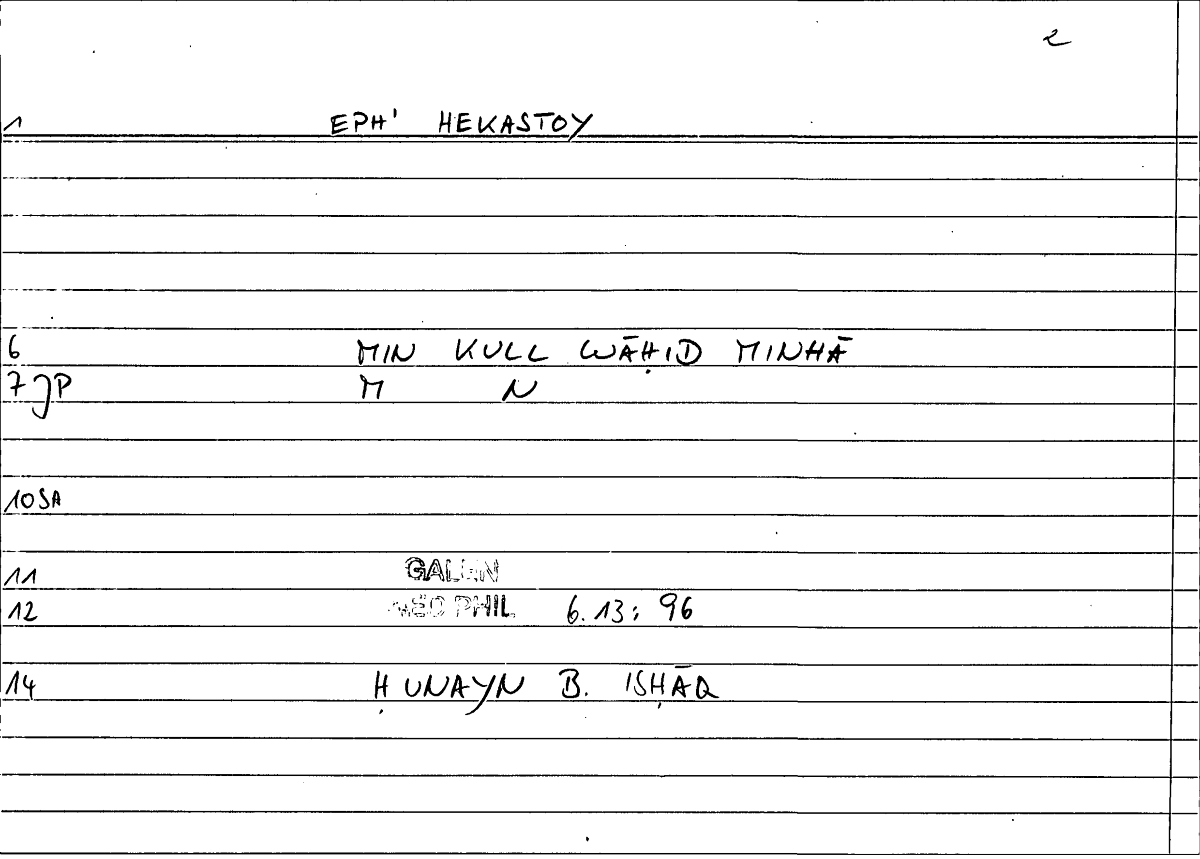 2
1 EPH' HEKASTOY
6 MIN KULL WĀḤID MINHĀ
7 JP M N
10 SA
11 GALEN
12 MED PHIL 6.13: 96
14 ḤUNAYN B. ISḤĀQ